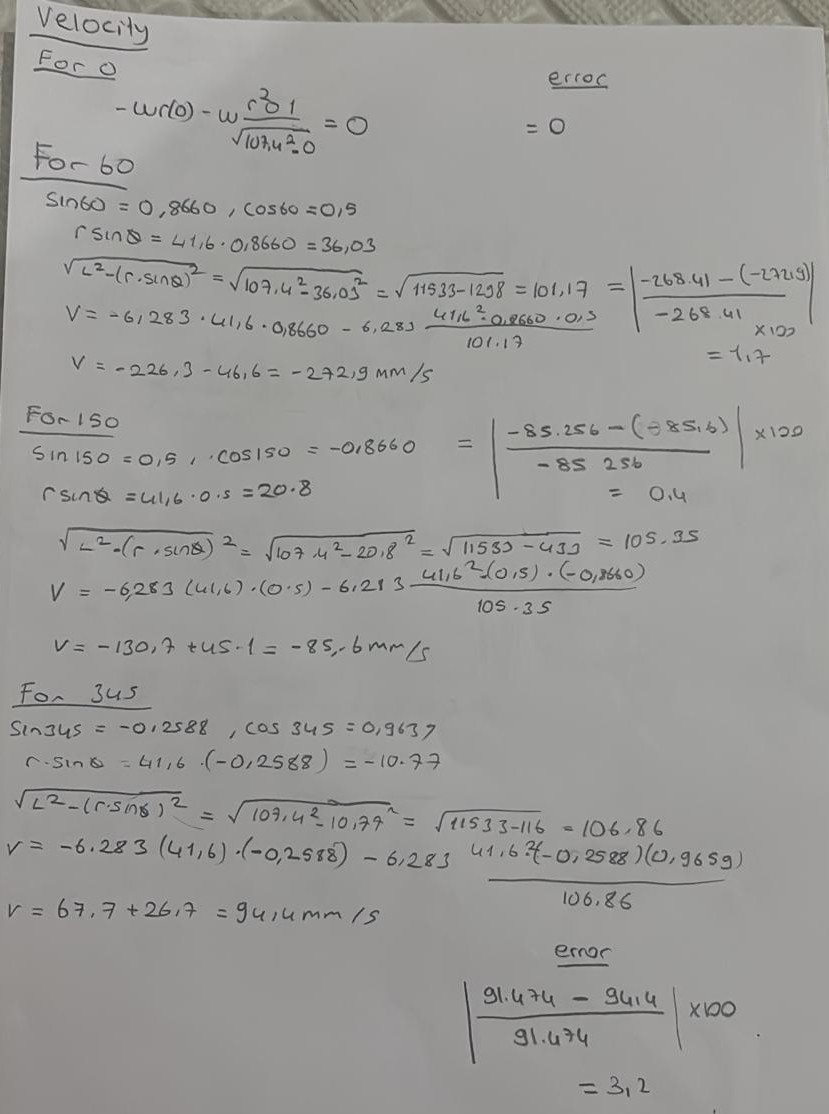 Velocity
For 0
error
-wr(0) - w r² 0 1 / √107,4² - 0 = 0
= 0
For 60
Sin60 = 0,8660 , cos60 = 0,5
r sinθ = 41,6 · 0,8660 = 36,03
√L² - (r · sinθ)² = √107,4² - 36,03² = √11533 - 1298 = 101,17 = | -268.41 - (-272,9) / -268.41 | x100
V = -6,283 · 41,6 · 0,8660 - 6,283 41,6² · 0,8660 · 0,5 / 101.17
= 1,7
V = -226,3 - 46,6 = -272,9 mm/s
For 150
Sin 150 = 0,5 , · cos150 = -0,8660 = | -85.256 - (-85,6) / -85 256 | x100
r sinθ = 41,6 · 0.5 = 20.8
= 0,4
√L² - (r · sinθ)² = √107.4² - 20,8² = √11533 - 433 = 105.35
V = -6,283 (41,6) · (0.5) - 6,283 41,6² · (0,5) · (-0,8660) / 105.35
V = -130,7 + 45.1 = -85,6 mm/s
For 345
Sin345 = -0,2588 , cos 345 = 0,9639
r · sinθ = 41,6 · (-0,2588) = -10.77
√L² - (r · sinθ)² = √107,4² - 10,77² = √11533 - 116 = 106,86
V = -6.283 (41,6) · (-0,2588) - 6,283 41,6² (-0,2588) (0,9659) / 106.86
V = 67,7 + 26,7 = 94,4 mm/s
error
| 91.474 - 94,4 / 91.474 | x100
= 3,2